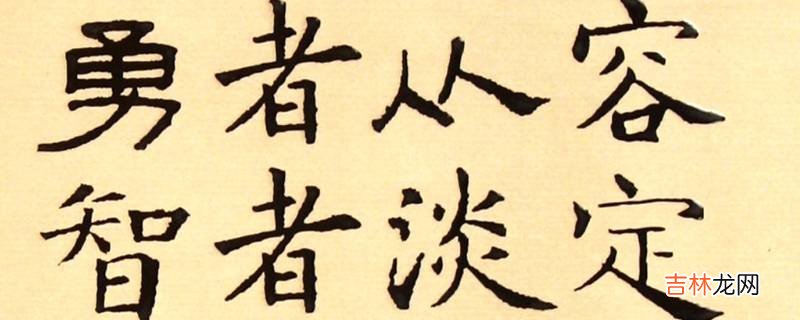 勇者从容
智者淡定
吉林龙网